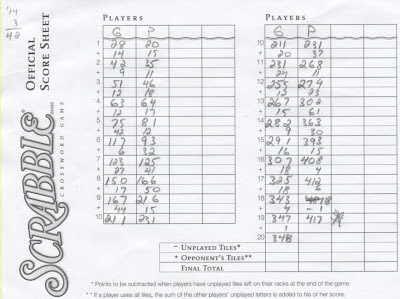 '14
3
42
OFFICIAL
SCORE SHEET
SCRABBLE
CROSSWORD GAME
PLAYERS
G P
1 28 20
+ 14 15
2 42 35
+ 9 11
3 51 46
+ 12 18
4 63 64
+ 12 17
5 75 81
+ 42 12
6 117 93
+ 6 32
7 123 125
+ 27 41
8 150 166
+ 17 50
9 167 216
+ 44 15
10 211 231
PLAYERS
G P
10 211 231
+ 20 37
11 231 268
+ 24 11
12 255 279
+ 12 23
13 267 302
+ 15 61
14 282 363
+ 9 30
15 291 393
+ 16 15
16 307 408
+ 18 4
17 325 412
+ 18 6
18 343 418
+ 4 -1
19 347 417
+ 1
20 348
– UNPLAYED TILES*
+ OPPONENT'S TILES**
FINAL TOTAL
* Points to be subtracted when players have unplayed tiles left on their racks at the end of the game.
** If a player uses all tiles, the sum of the other players' unplayed letters is added to his or her score.